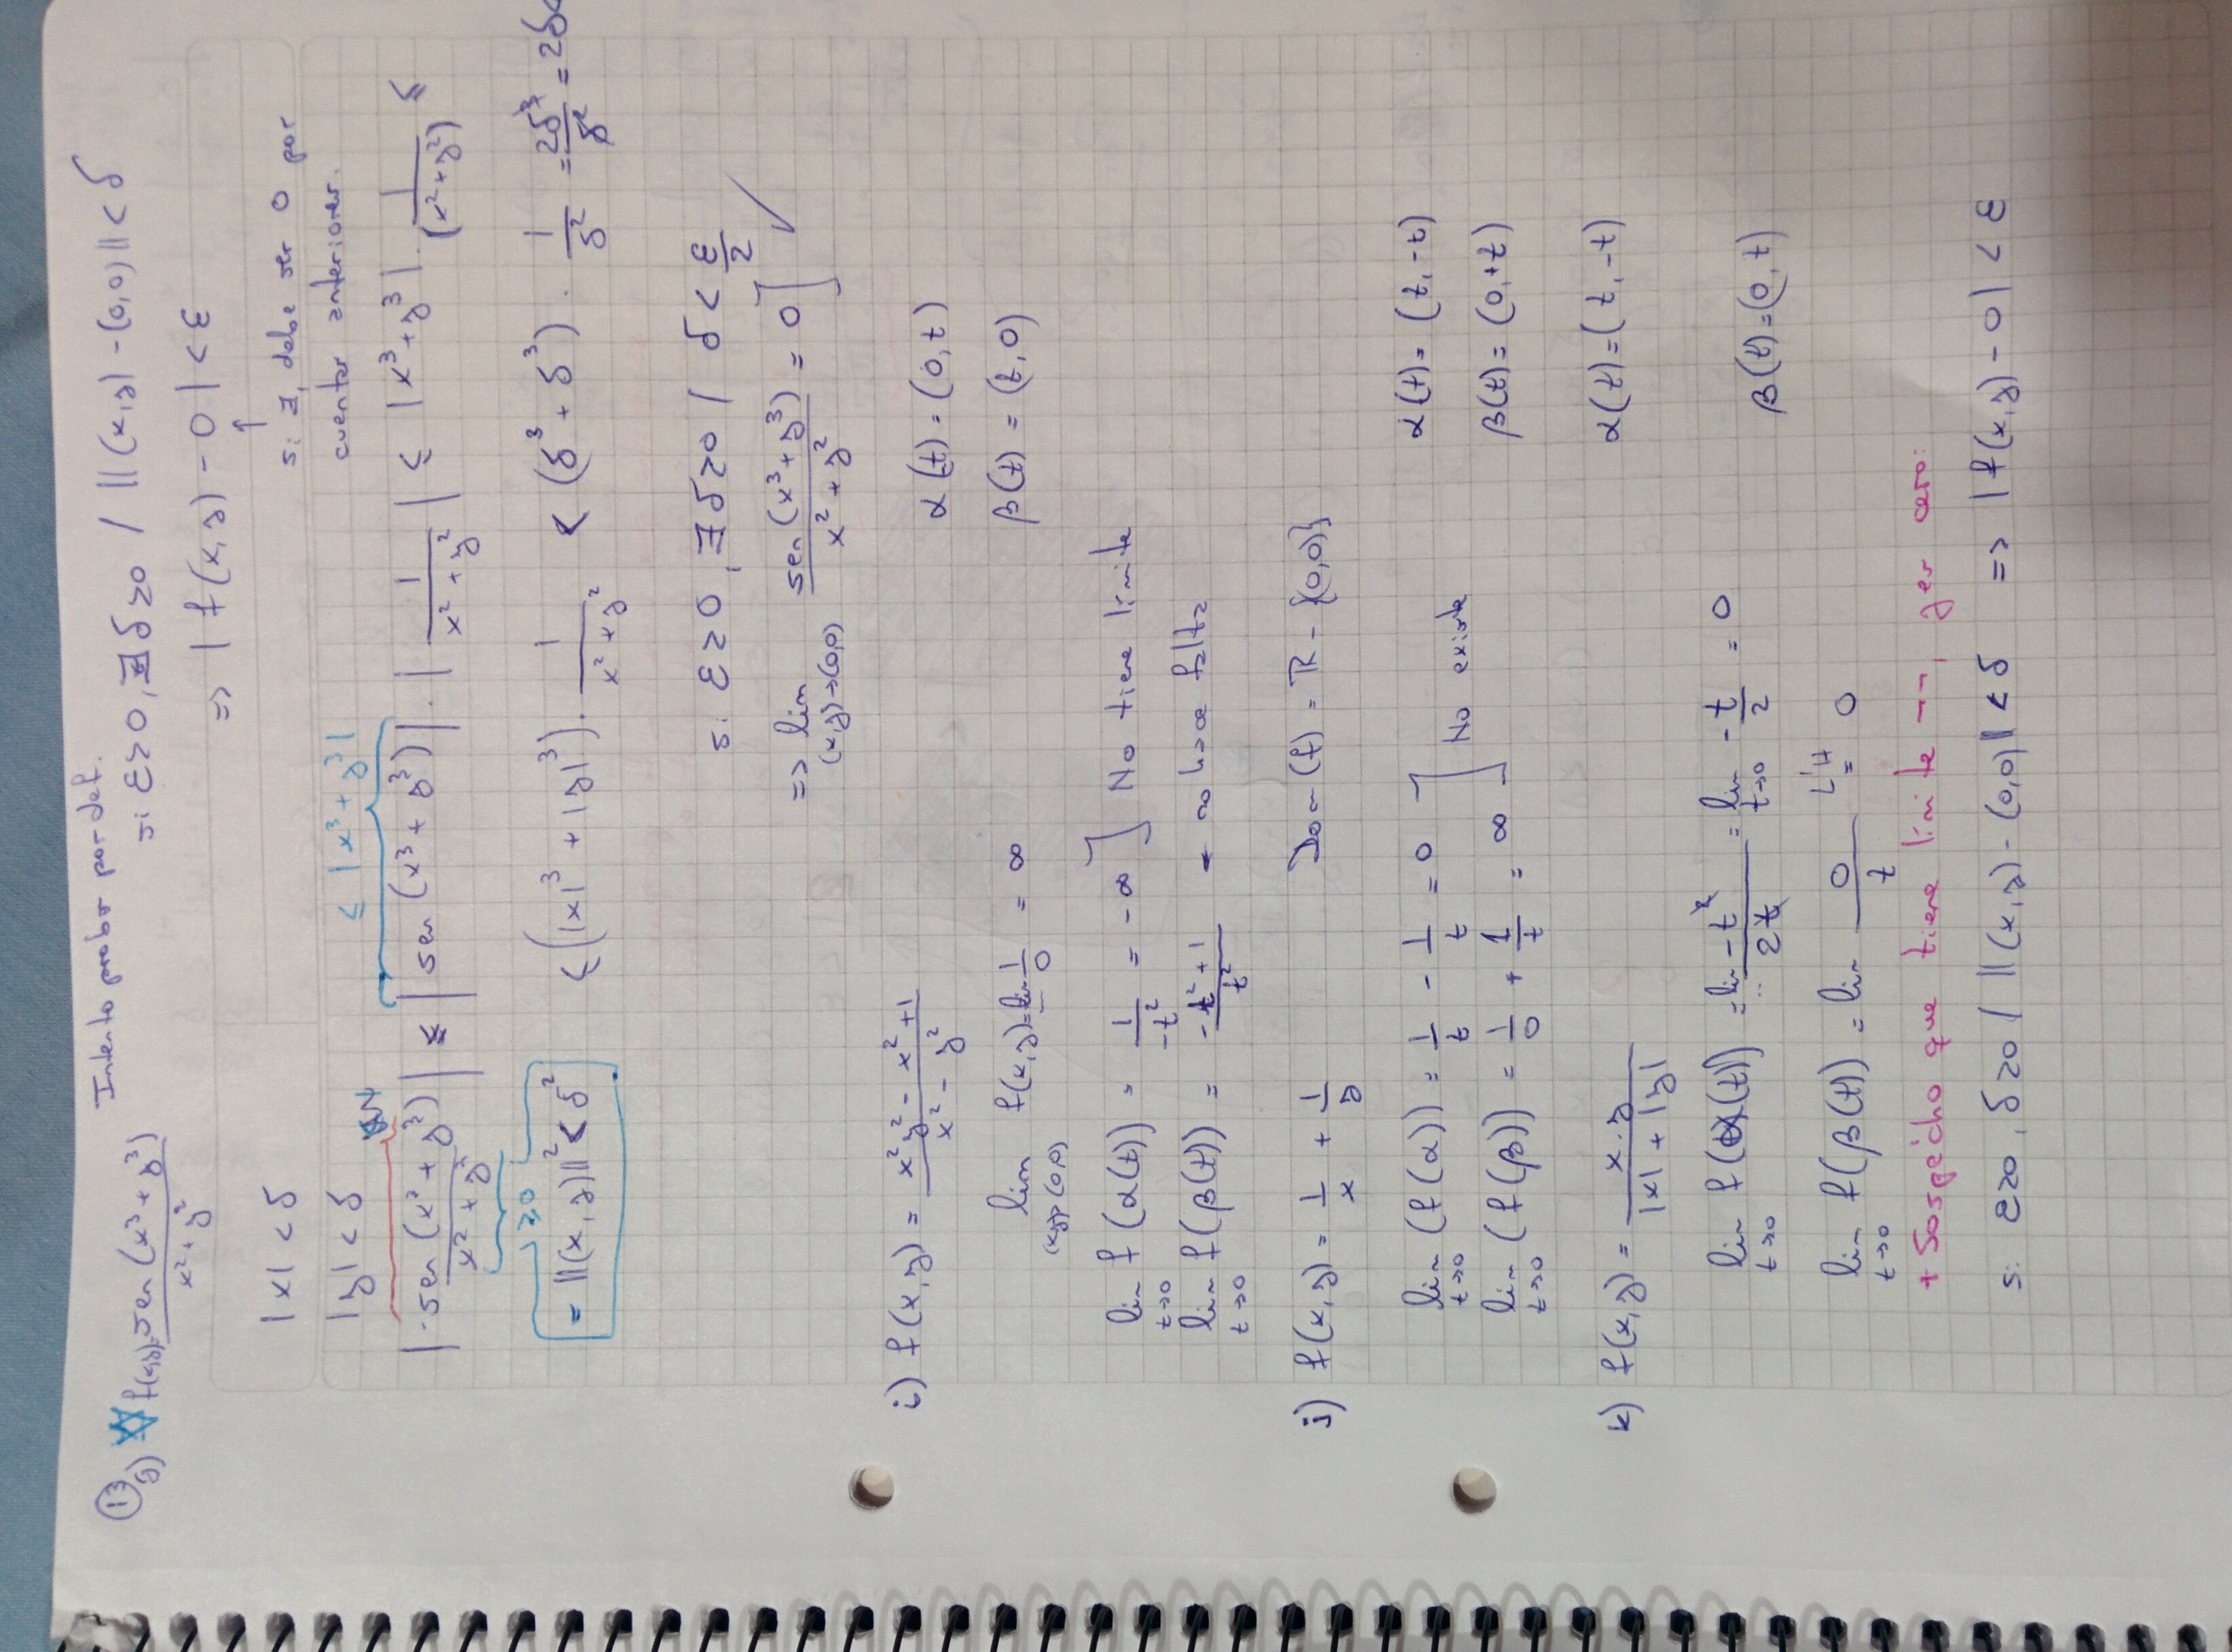 Intento probar por def.
13
g) f(x,y)= sen(x³+y³) / x²+y²
si ε>0, ∃ δ>0 / ||(x,y)-(0,0)|| < δ
=> | f(x,y) - 0 | < ε
↑
si ∃, debe ser 0 por
cuentas anteriores.
|x| < δ
|y| < δ
≤ |x³+y³|
| sen(x³+y³) / x²+y² | ≤ | sen(x³+y³) | · | 1 / x²+y² | ≤ |x³+y³| · 1 / (x²+y²) ≤
≥0
= ||(x,y)||² < δ²
≤ (|x|³+|y|³) · 1 / x²+y² < (δ³+δ³) · 1/δ² = 2δ³/δ² = 2δ<
si ε>0, ∃ δ>0 / δ < ε/2
=> lim (x,y)→(0,0) sen(x³+y³) / x²+y² = 0 ] ✓
i) f(x,y) = x²y² - x² +1 / x² - y²
α(t) = (0,t)
lim (x,y)→(0,0) f(x,y) = lim 1/0 = ∞
β(t) = (t,0)
lim t→0 f(α(t)) = 1 / -t² = -∞ ] No tiene límite
lim t→0 f(β(t)) = -t²+1 / t² = no hace falta
j) f(x,y) = 1/x + 1/y
Dom(f) = ℝ - {(0,0)}
lim t→0 (f(α)) = 1/t - 1/t = 0
α(t) = (t,-t)
] No existe
lim t→0 (f(β)) = 1/0 + 1/t = ∞
β(t) = (0,+t)
k) f(x,y) = x.y / |x| + |y|
α(t) = (t,-t)
lim t→0 f(α(t)) = lim -t² / 2t = lim t→0 -t/2 = 0
β(t) = (0,t)
lim t→0 f(β(t)) = lim 0 / t L'H = 0
+ Sospecho que tiene límite ¬¬, y es cero:
si ε>0, δ>0 / ||(x,y)-(0,0)|| < δ => |f(x,y)-0| < ε